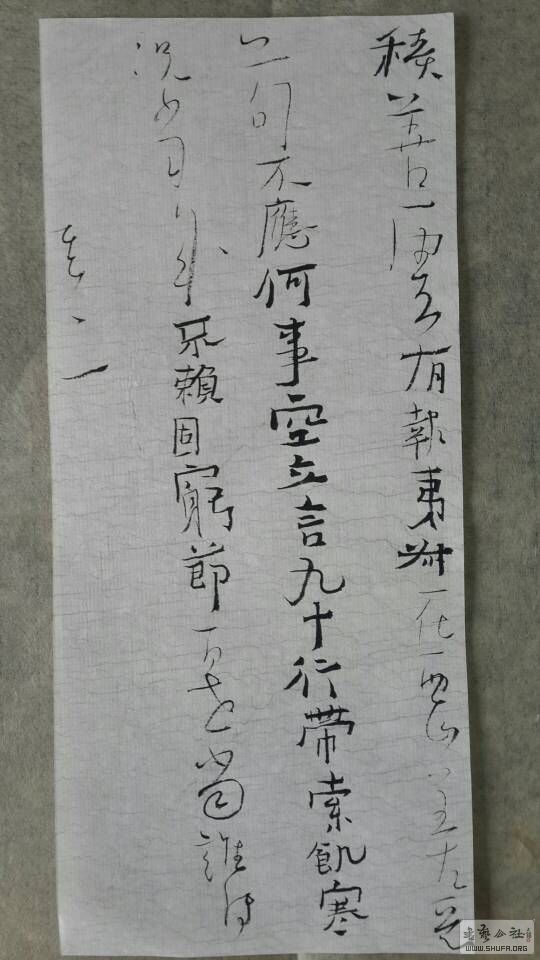 積善云有報夷叔在西山善惡
苟不應何事空立言九十行帶索飢寒
況當年不賴固窮節百世當誰傳
其二
书艺公社
WWW.SHUFA.ORG